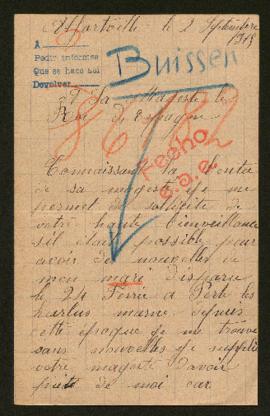 Martville le 2 Septembre
1915
A
Pedir informes
Que se hace así
Devolver
Buissen
A Sa Majesté le
Roi d'Espagne
Fecho
Connaissant la bonté
de sa majesté je me
permet de sollicité de
votre haute bienveillance
s'il était possible pour
avoir de nouvelles de
mon mari disparu
le 24 Février a Perte les
hurlus marne depuis
cette époque je me trouve
sans nouvelles je supplie
votre majesté d'avoir
pitié de moi car